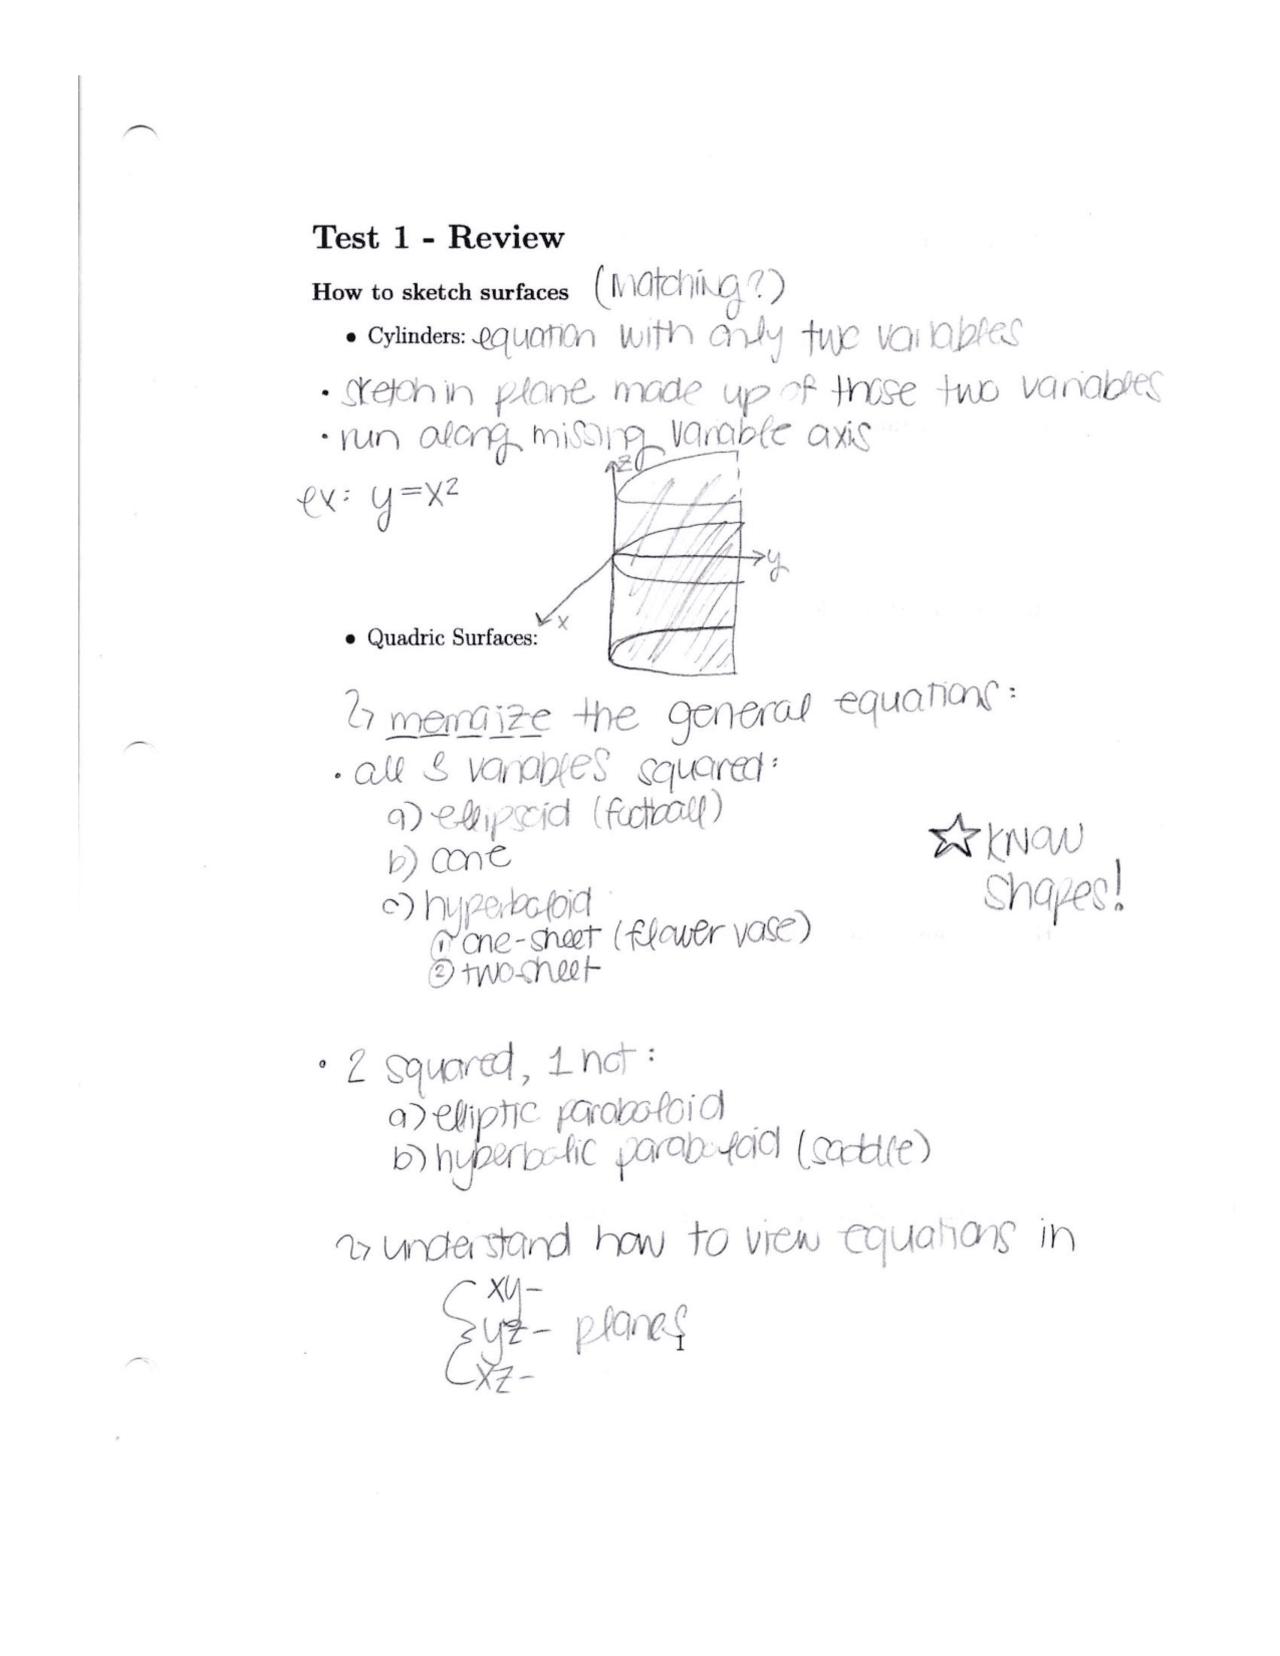 Test 1 - Review
How to sketch surfaces (Matching?)
• Cylinders: equation with only two variables
• sketch in plane made up of those two variables
• run along missing variable axis
z
ex: y=x²
y
x
• Quadric Surfaces:
↳ memorize the general equations:
• all 3 variables squared:
a) ellipsoid (football)
b) cone
☆ know
shapes!
c) hyperboloid
① one-sheet (flower vase)
② two-sheet
• 2 squared, 1 not:
a) elliptic paraboloid
b) hyperbolic paraboloid (saddle)
↳ understand how to view equations in
xy-
yz- planes
xz-
1